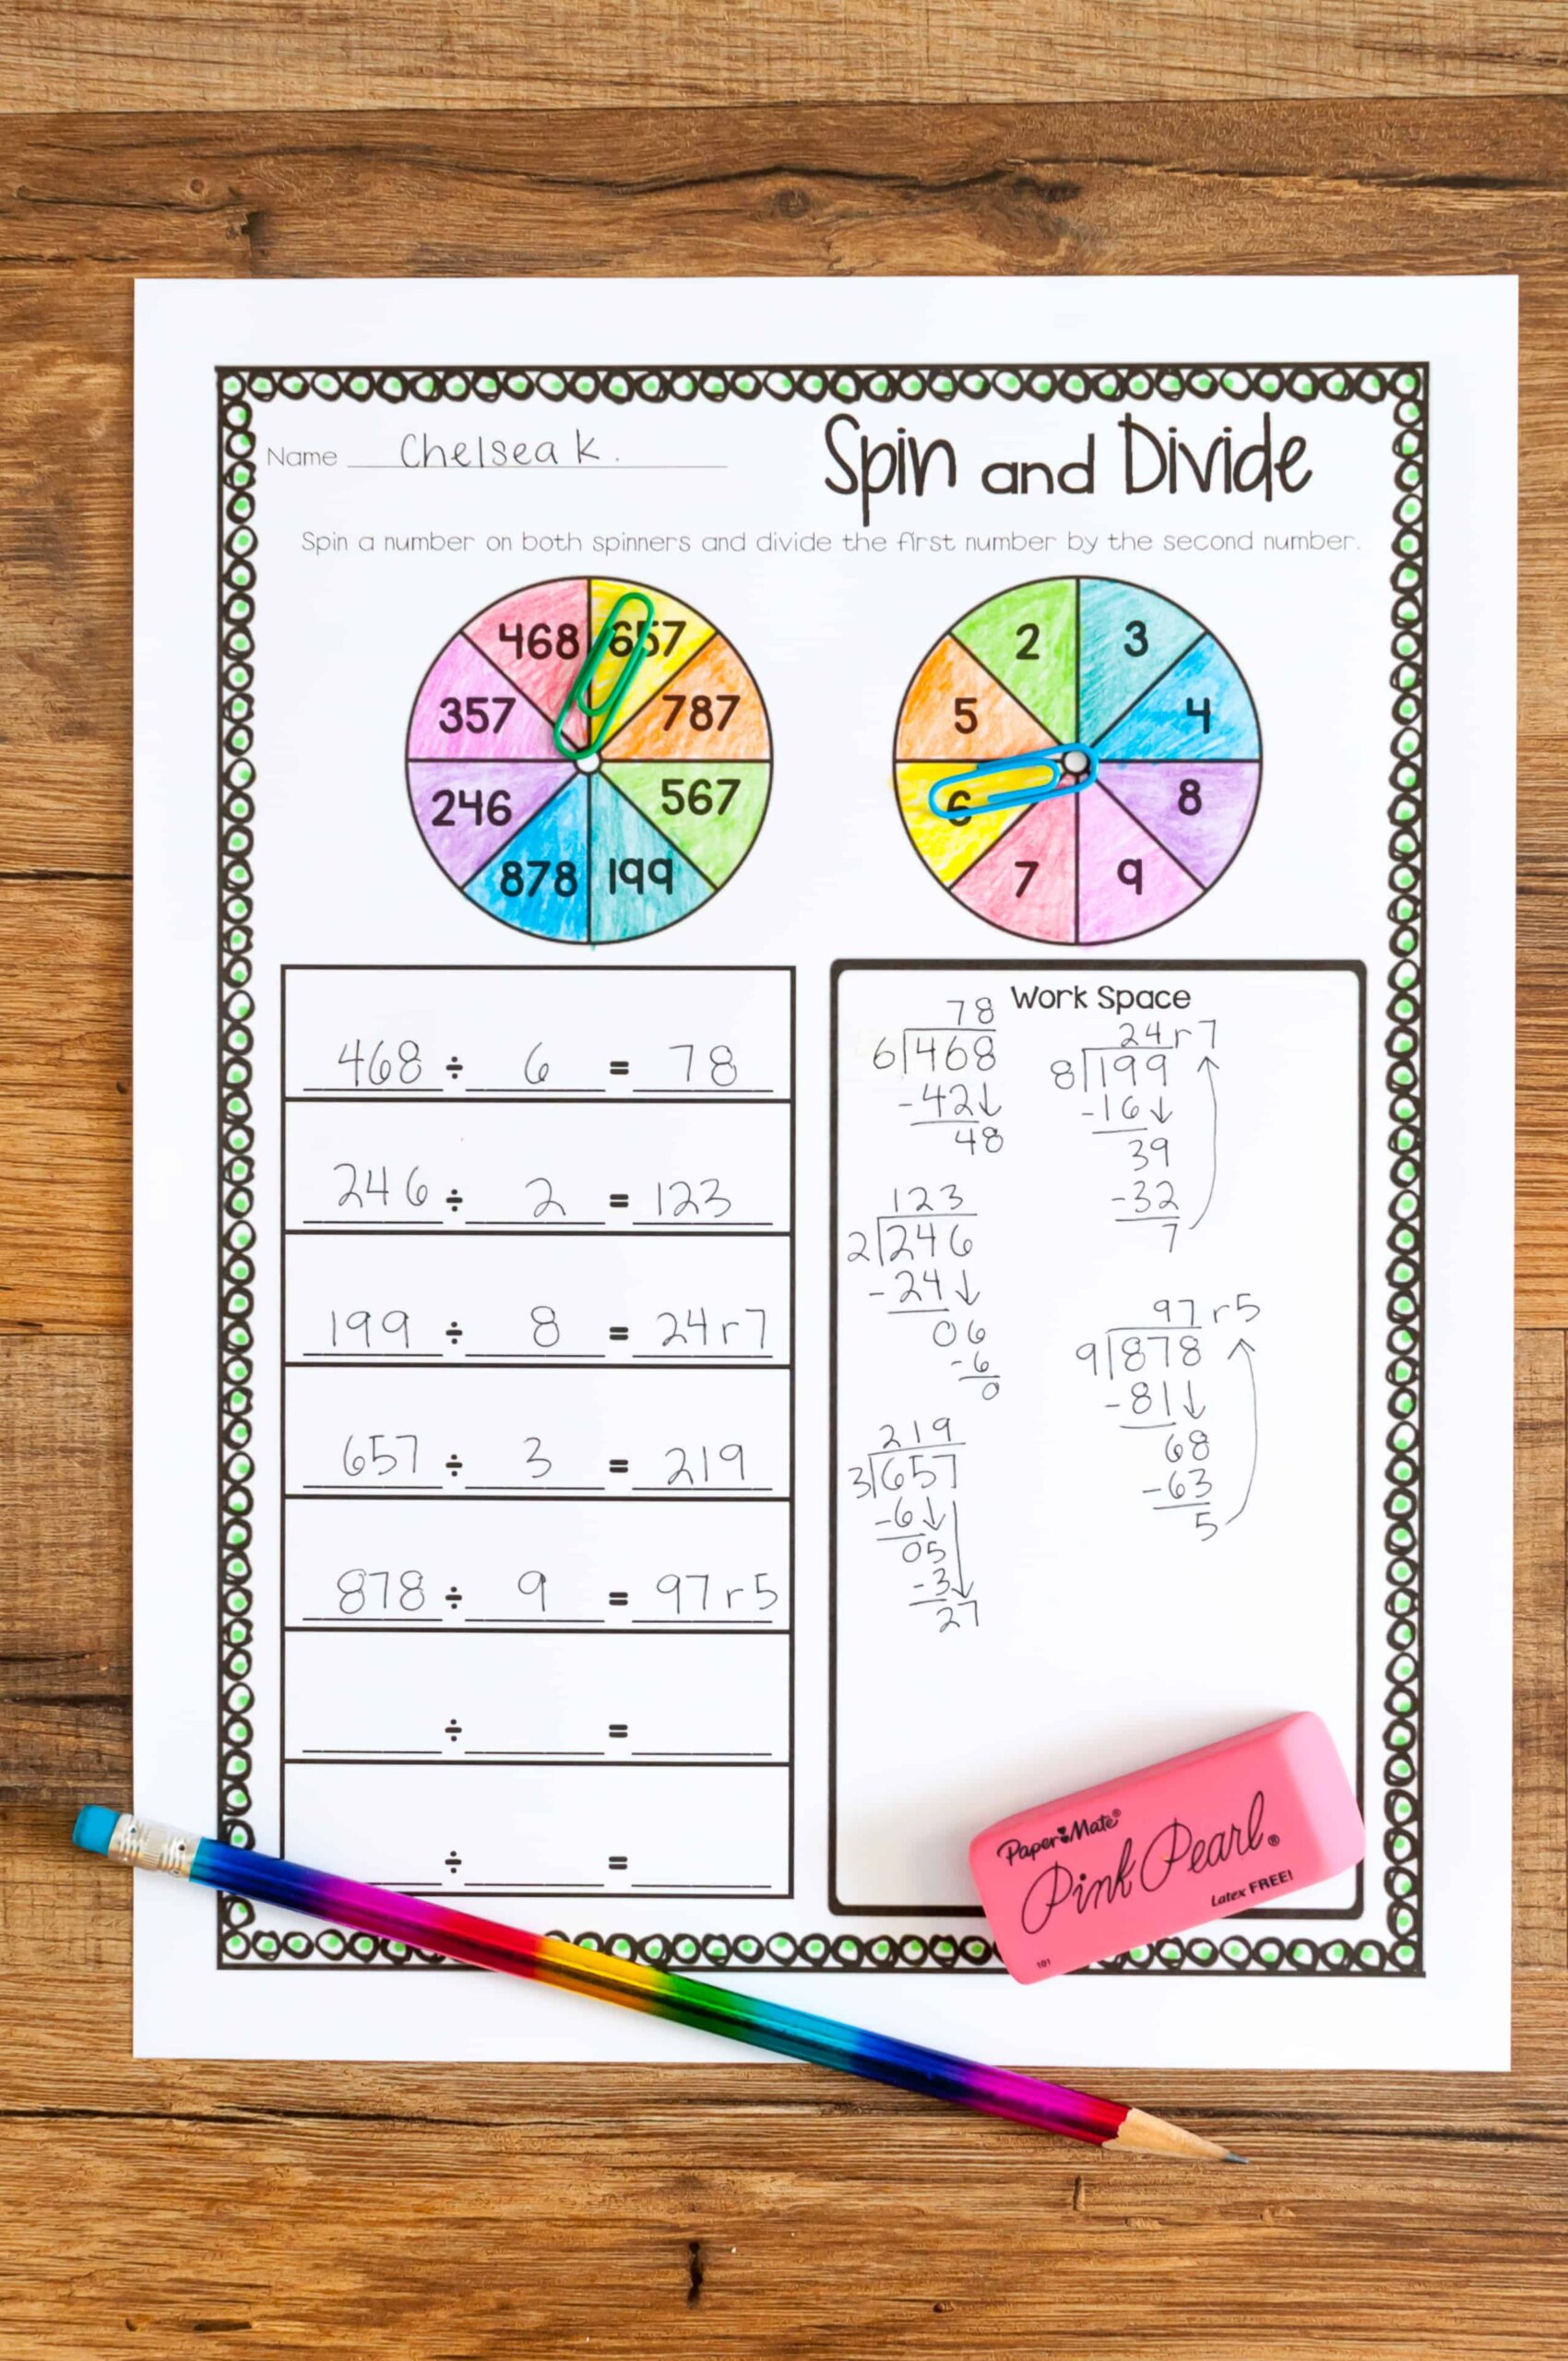 Name Chelsea K.
Spin and Divide
Spin a number on both spinners and divide the first number by the second number.
468 657
357 787
246 567
878 199
2 3
5 4
6 8
7 9
468 ÷ 6 = 78
246 ÷ 2 = 123
199 ÷ 8 = 24r7
657 ÷ 3 = 219
878 ÷ 9 = 97r5
÷ =
÷ =
Work Space
78
6)468
-42↓
48
123
2)246
-24↓
06
-6
0
219
3)657
-6↓
05
-3↓
27
24r7
8)199
-16↓
39
-32
7
97r5
9)878
-81↓
68
-63
5
Paper Mate®
Pink Pearl®
Latex FREE!
101